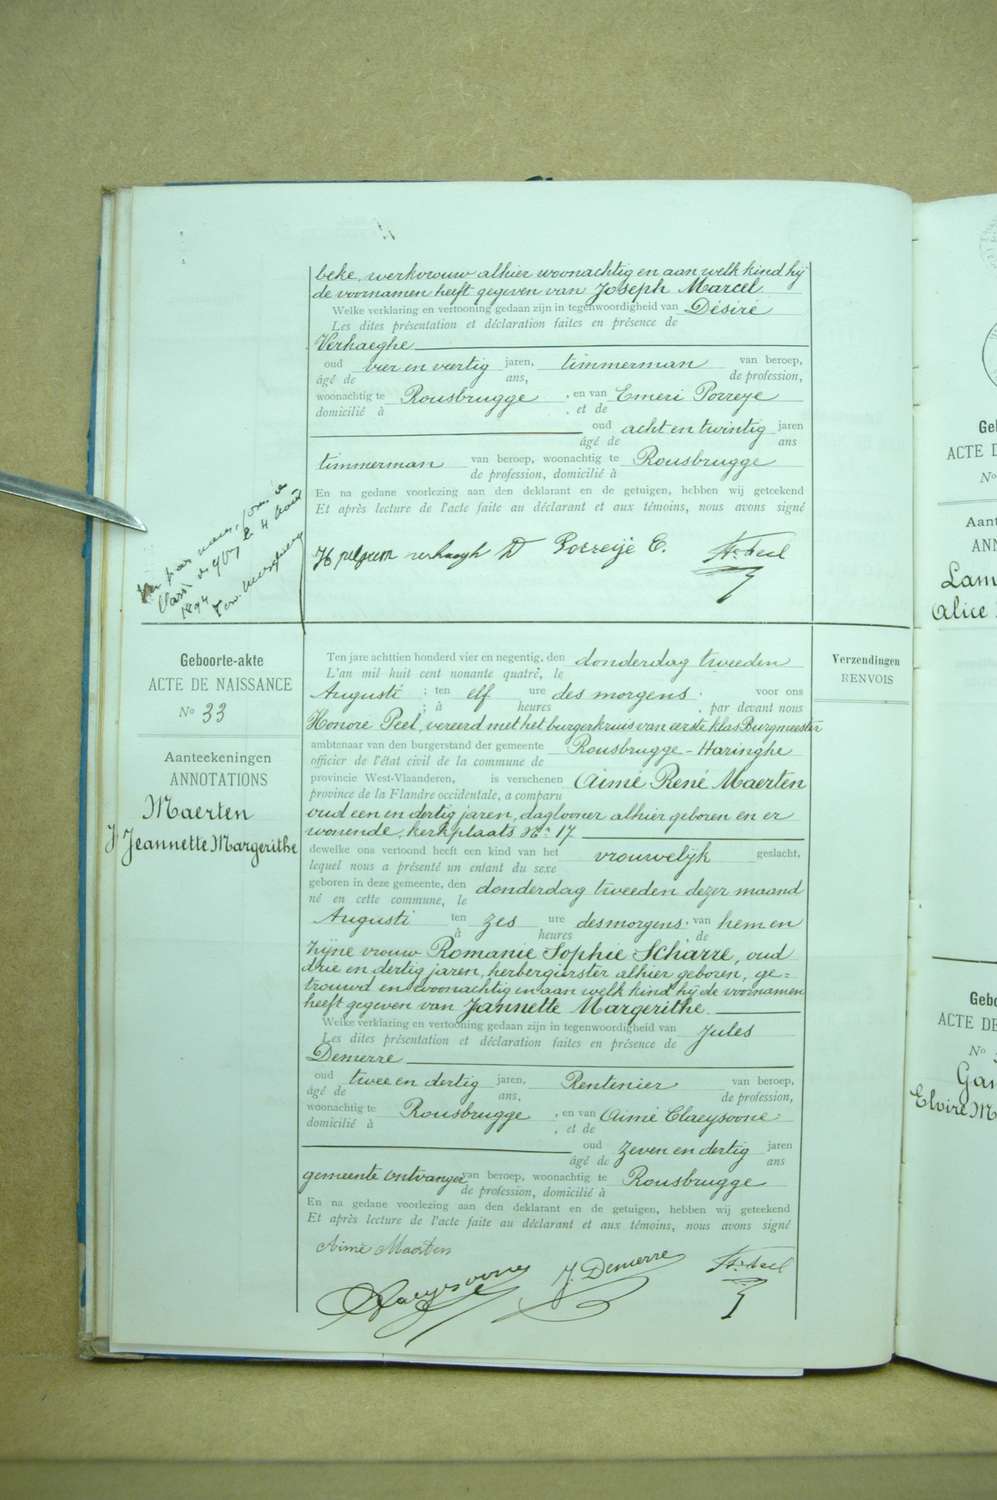 beke, werkvrouw alhier woonachtig en aan welk kind hij
de voornamen heeft gegeven van Joseph Marcel
Welke verklaring en vertooning gedaan zijn in tegenwoordigheid van Désiré
Les dites présentation et déclaration faites en présence de
Verhaeghe
oud vier en veertig jaren, timmerman van beroep,
âgé de ans, de profession,
woonachtig te Rousbrugge , en van Emeri Porreye
domicilié à , et de
oud acht en twintig jaren
âgé de ans
timmerman van beroep, woonachtig te Rousbrugge
de profession, domicilié à
En na gedane voorlezing aan den deklarant en de getuigen, hebben wij geteekend
Et après lecture de l'acte faite au déclarant et aux témoins, nous avons signé
verhaeghe D Porreije E. Hr. Peel
Vu par nous,
4 Août
1894
Geboorte-akte
ACTE DE NAISSANCE
No 33
Aanteekeningen
ANNOTATIONS
Maerten
Jeannette Margerithe
Ten jare achttien honderd vier en negentig, den donderdag tweeden
L'an mil huit cent nonante quatre, le
Augusti ; ten elf ure des morgens ; voor ons
; à heures , par devant nous
Honoré Peel, vereerd met het burgerkruis van eerste klas Burgmeester
ambtenaar van den burgerstand der gemeente Rousbrugge-Haringhe
officier de l'état civil de la commune de
provincie West-Vlaanderen, is verschenen Aimé René Maerten
province de la Flandre occidentale, a comparu
oud een en dertig jaren, daglooner alhier geboren en er
wonende, kerkplaats No. 17
dewelke ons vertoond heeft een kind van het vrouwelijk geslacht,
lequel nous a présenté un enfant du sexe
geboren in deze gemeente, den donderdag tweeden dezer maand
né en cette commune, le
Augusti ten zes ure desmorgens, van hem en
à heures , de
zijne vrouw Romanie Sophie Scharre, oud
drie en dertig jaren, herbergierster alhier geboren, ge=
trouwd en woonachtig en aan welk kind hij de voornamen
heeft gegeven van Jannette Margerithe.
Welke verklaring en vertooning gedaan zijn in tegenwoordigheid van Jules
Les dites présentation et déclaration faites en présence de
Demerre
oud twee en dertig jaren, Rentenier van beroep,
âgé de ans, de profession,
woonachtig te Rousbrugge , en van Aimé Claeysoone
domicilié à , et de
oud zeven en dertig jaren
âgé de ans
gemeente ontvanger van beroep, woonachtig te Rousbrugge
de profession, domicilié à
En na gedane voorlezing aan den deklarant en de getuigen, hebben wij geteekend
Et après lecture de l'acte faite au déclarant et aux témoins, nous avons signé
Aimé Maerten
Claeysoone J. Demerre Hr. Peel
Verzendingen
RENVOIS
Lam
Alice
No
Gan
Elvire M